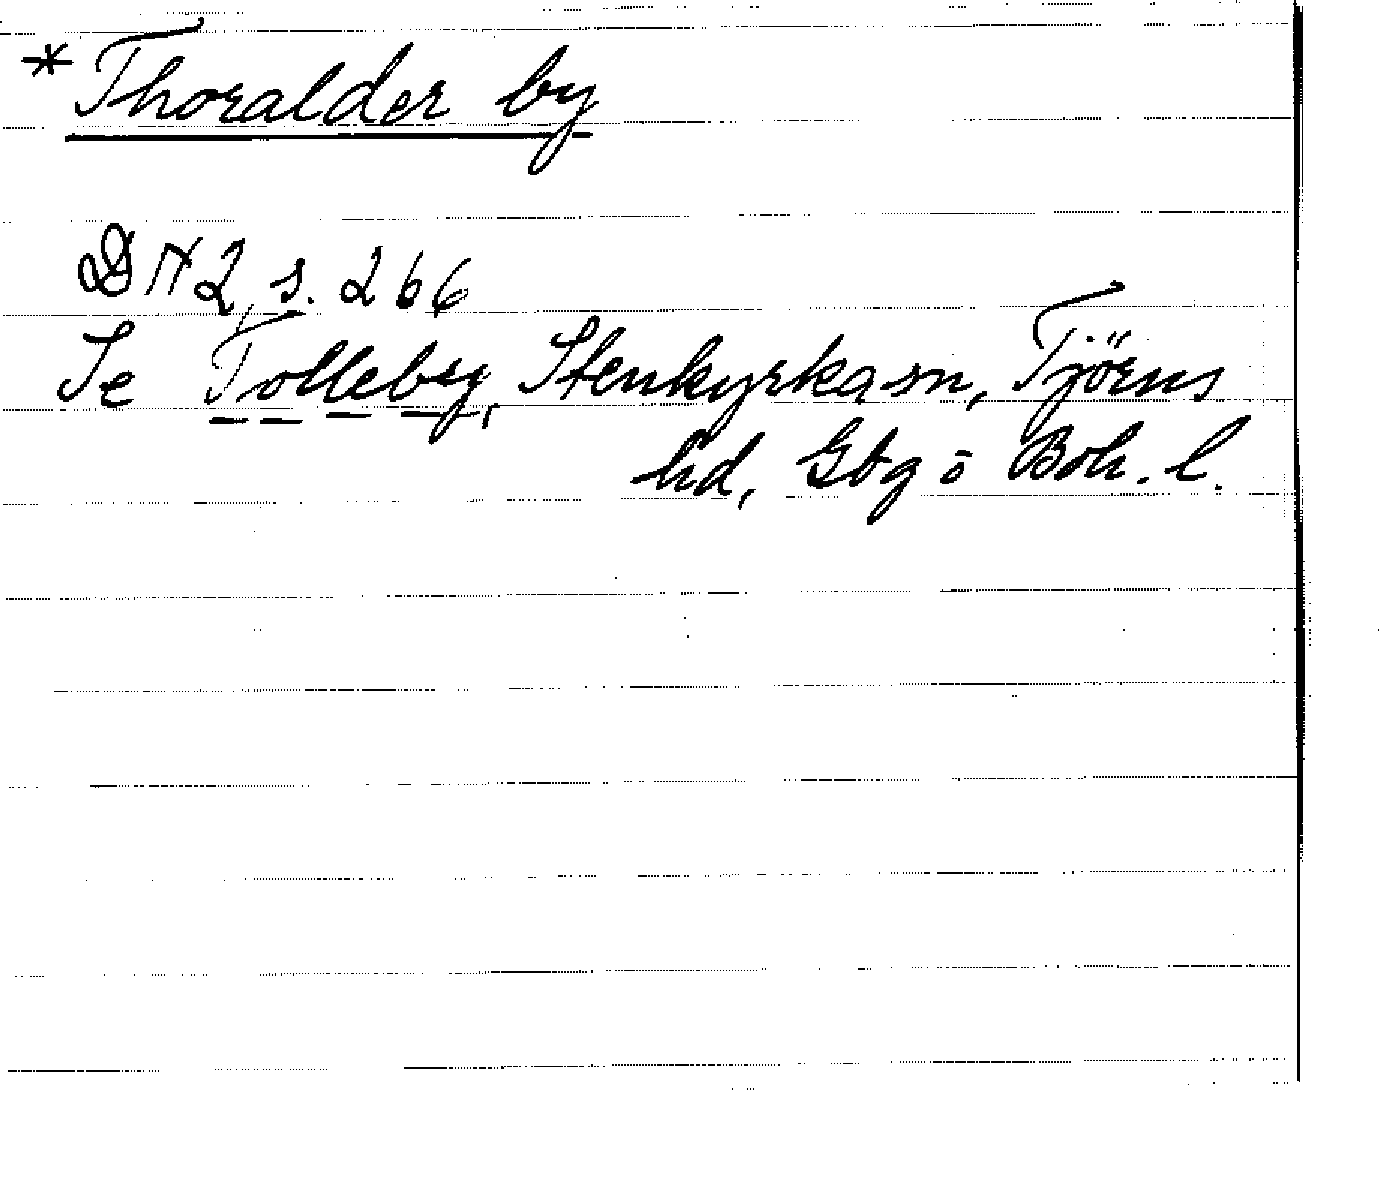 * Thoralder by
DN 2, s. 266
Se Tolleby, Stenkyrka sn, Tjörns
hd, Gbg o Boh. l.